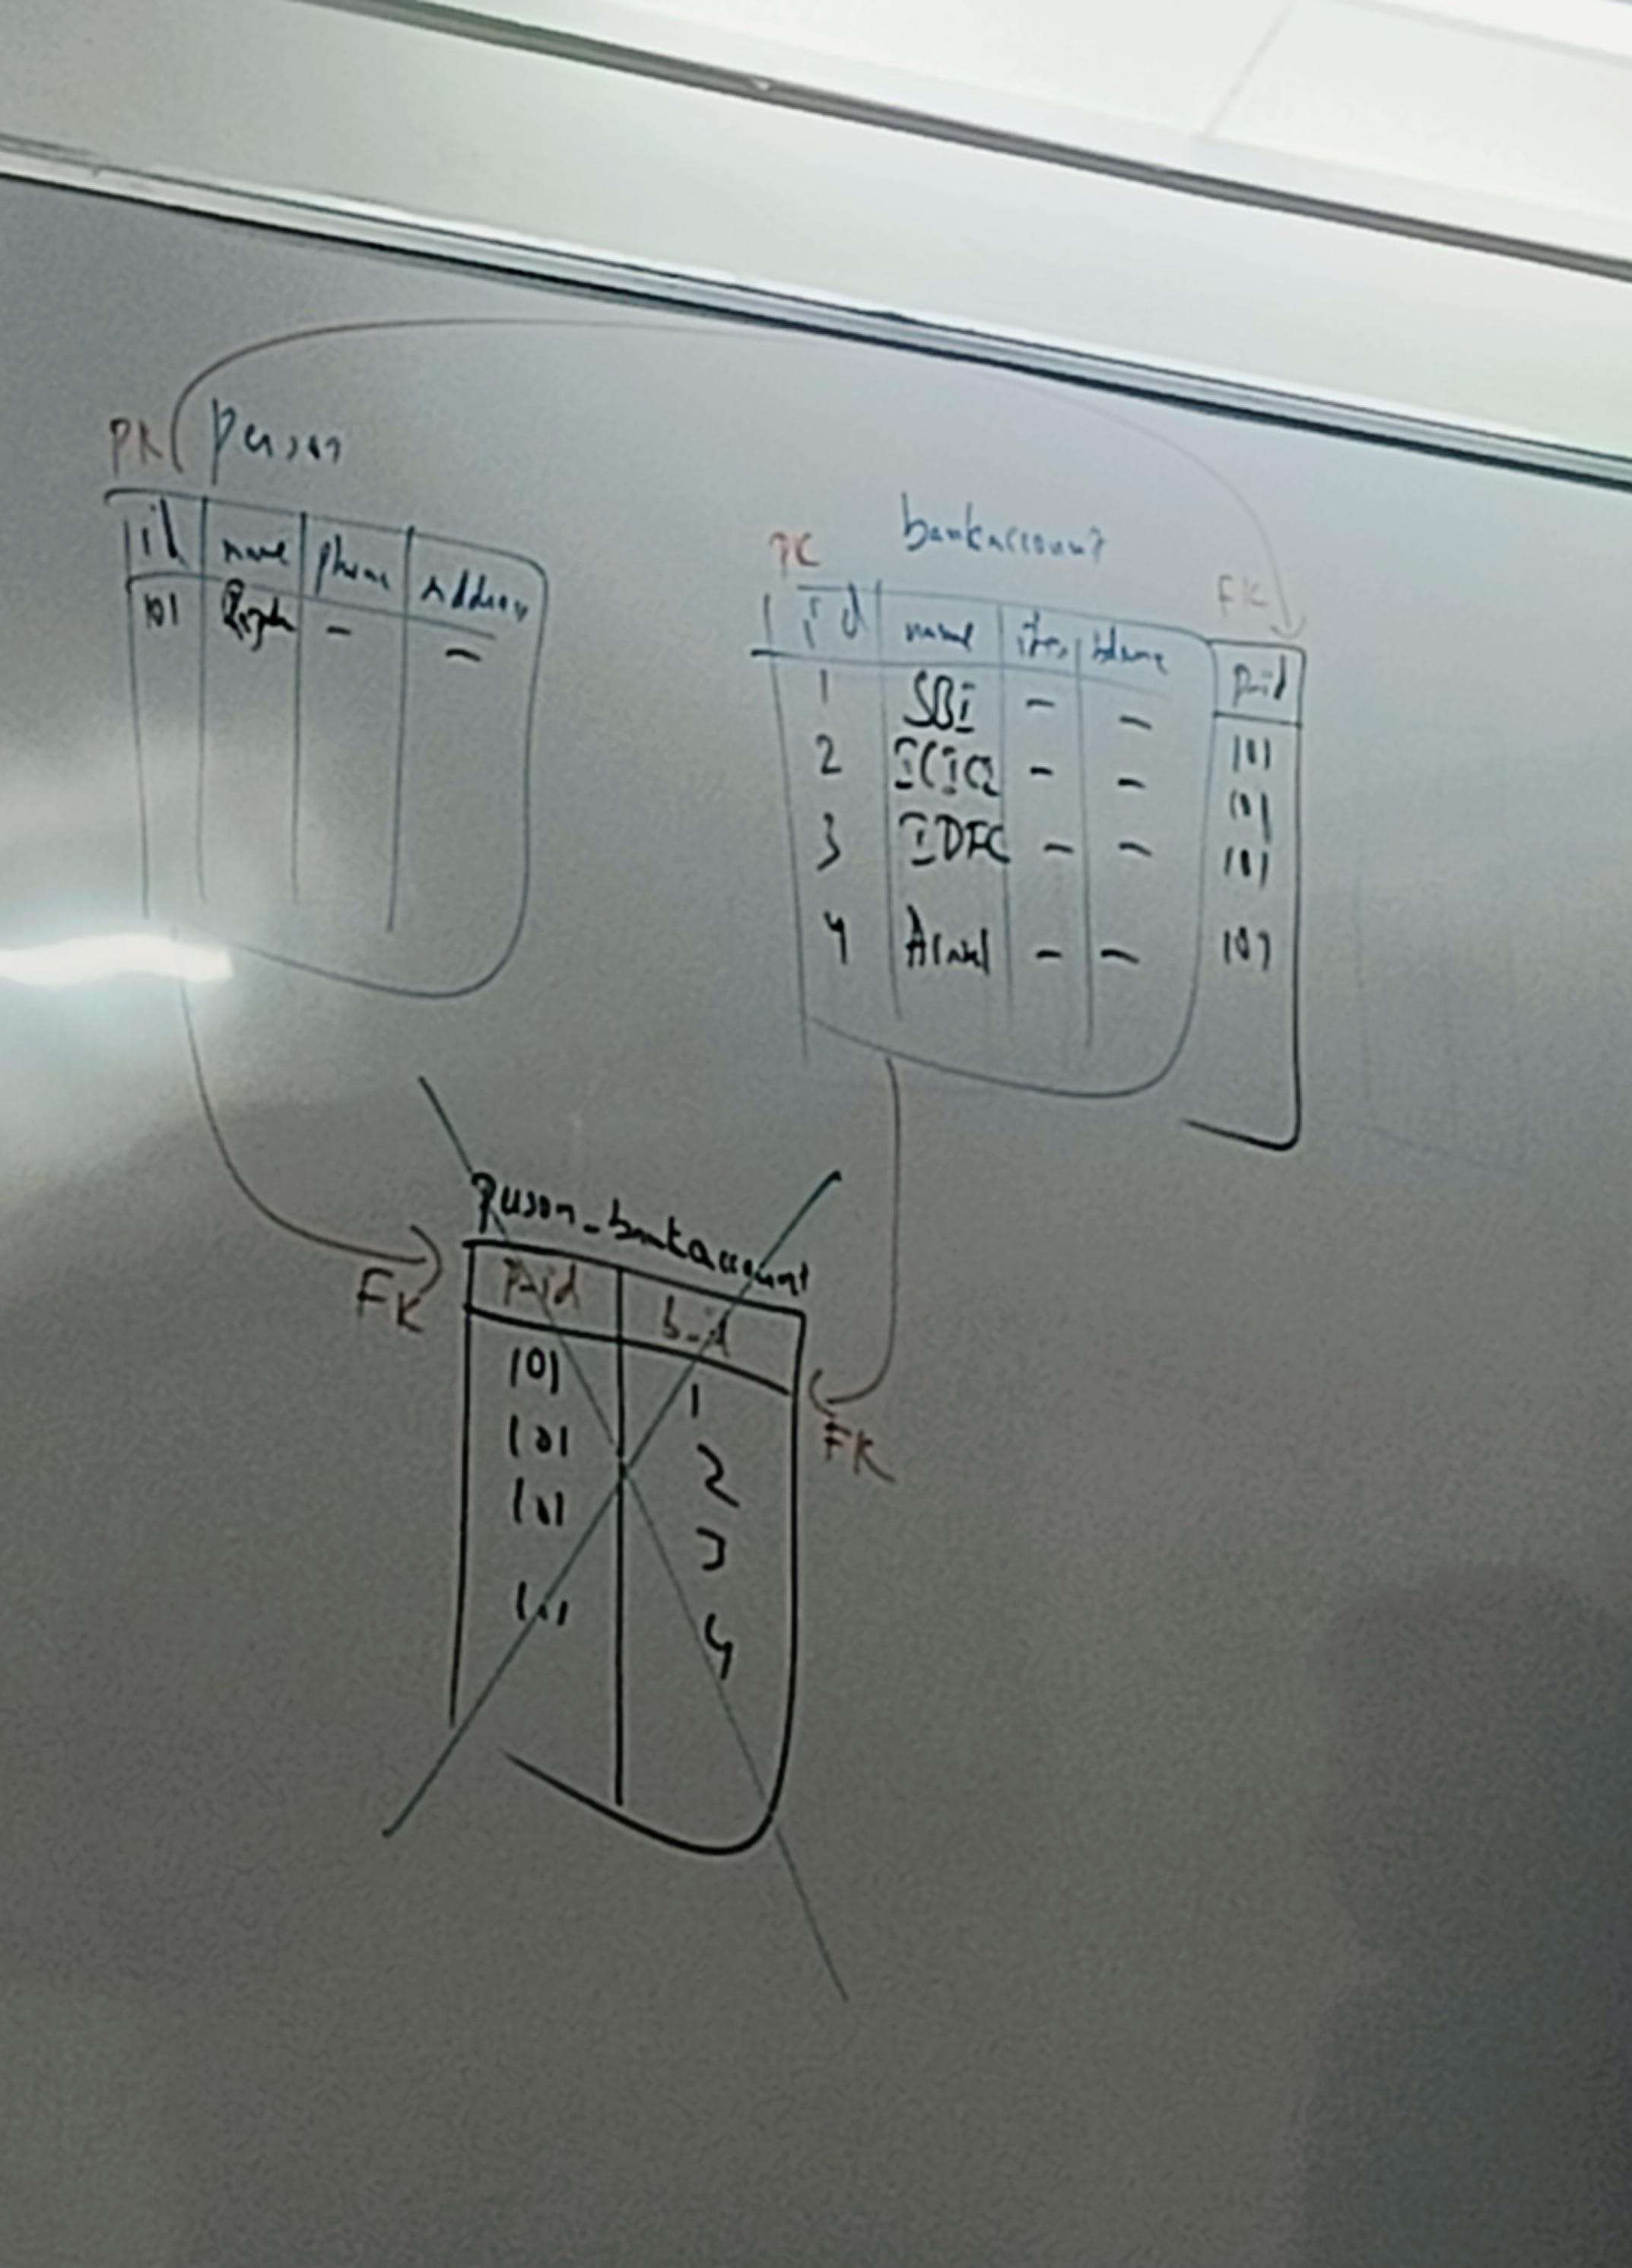 PK person
id name phone Address
101 - -
PK bankaccount FK
id name balance p_id
1 SBI - - 101
2 ICICI - - 101
3 IDFC - - 101
4 - - 101
person_bankaccount
FK p_id b_id FK
101 1
101 2
101 3
101 4